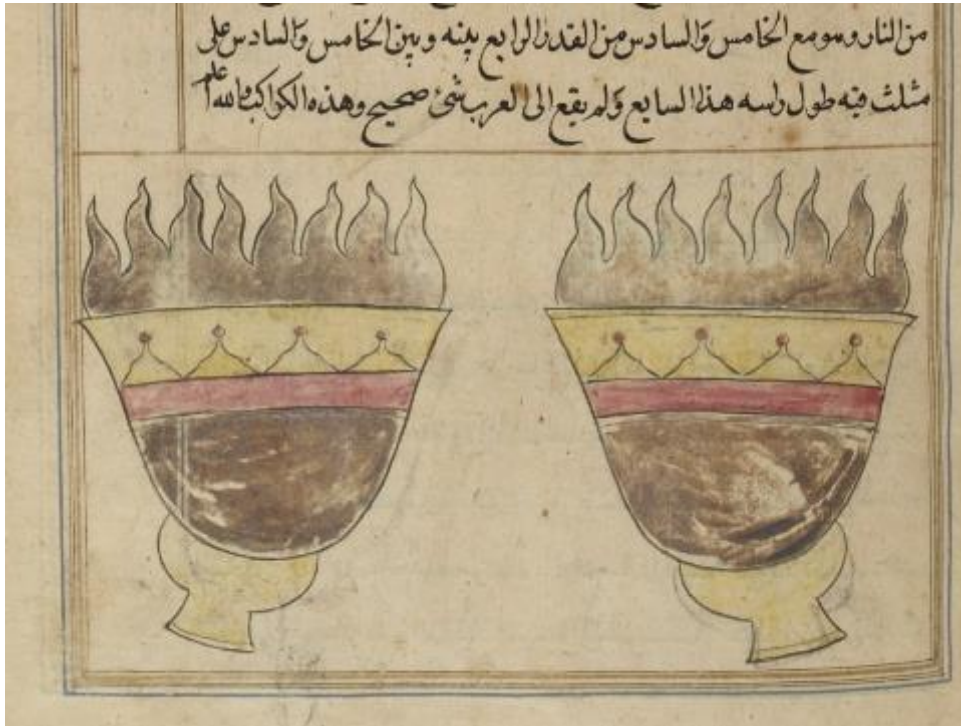 من النار وهو مع الخامس والسادس من القدر الرابع بينه وبين الخامس والسادس على
مثلث فيه طول راسه هذا السابع ولم يقع الى العرب شئ صحيح وهذه الكواكب والله اعلم